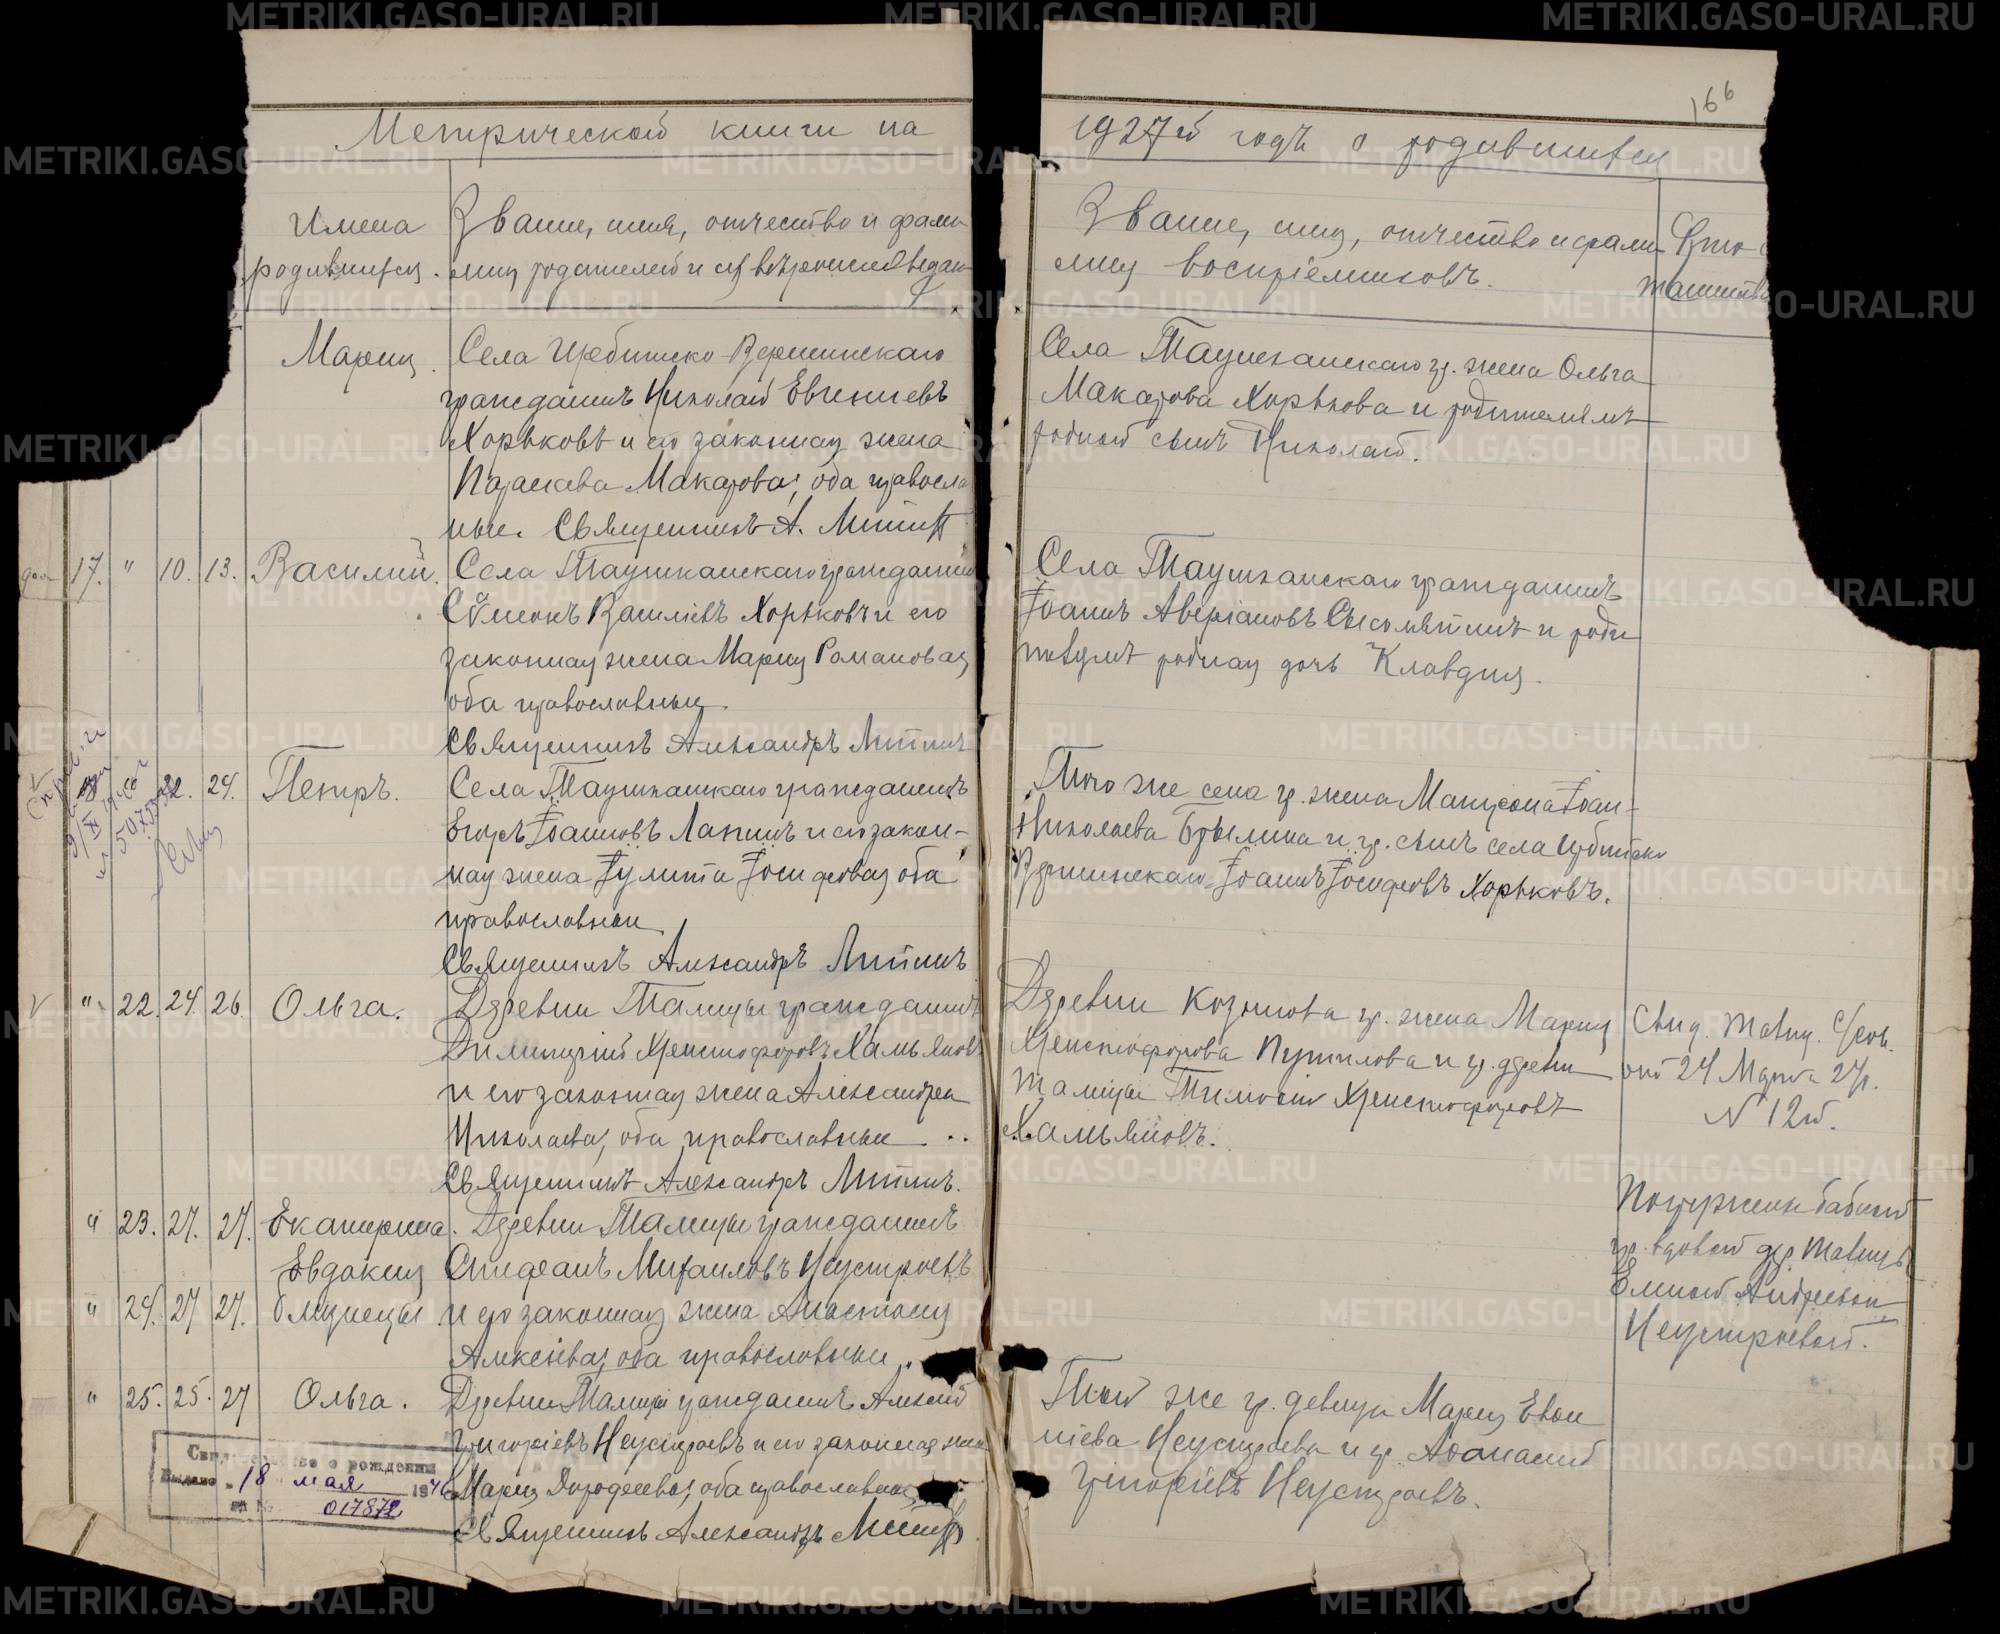 Метрической книги на
1927й годъ о родившихся
166
Имена
родившихся.
Званіе, имя, отчество и фами-
лия родителей и
Званіе, имя, отчество и фами-
лия воспріемниковъ.
Кто
таинство
Мария.
Села Ирбитско-Вершинскаго
гражданинъ Николай Евгениевъ
Хорьковъ и его законная жена
Параскева Макарова, оба правосла
ные. Священникъ А.
Села Таушканскаго гр. жена Ольга
Макарова Хорькова и родителямъ
родной сынъ Николай.
17. " 10. 13. Василий.
Села Таушканскаго гражданин
Сѵмеонъ Василіевъ Хорьковъ и его
законная жена Мария Романовая
оба православныя.
Священникъ Александръ
Села Таушканскаго гражданинъ
Іоаннъ Аверіановъ и роди
родная дочь Клавдия.
22. 24. Петръ.
Села Таушканскаго гражданинъ
Егоръ Іоанновъ Лапинъ и его закон-
ная жена Іулита Іосифовая оба
православныи
Священникъ Александръ
Того же села гр. жена Матрона Іоан-
Николаева Брылина и гр. сынъ села Ирбитско
Вершинскаго Іоаннъ Іосифовъ Хорьковъ.
V " 22. 24. 26. Ольга.
Деревни Талицы гражданинъ
Димитрій Христофоровъ Хамьяновъ
и его законная жена Александра
Николаева, оба православныи
Священникъ Александръ
Деревни Козонкова гр. жена Мария
Христофорова Путилова и гр. дерени
Талицы Тимофей Христофоровъ
Хамьяновъ.
Свид. С/сов.
от 24 Марта 27г.
N 12й.
" 23. 27. 27. Екатерина.
Евдокия
" 24. 27 27. близнецы
Деревни Талицы гражданинъ
Стефанъ Михаиловъ Неустроевъ
и его законная жена Анастасия
Алексіева, оба православныи.
Погружены бабкой
гр. вдовой дер.
Еленой Андреевой
Неустроевой.
" 25. 25. 27 Ольга.
Деревни Талицы гражданинъ Алексей
Григоріевъ Неустроевъ и его законная жена
Мария Дорофеева, оба православныи,
Священникъ Александръ
Той же гр. девица Мария
Неустроева и гр. Афанасий
Григоріевъ Неустроевъ.
Свидетельство о рождении
Выдано "18 мая 1946
за № 017872
METRIKI.GASO-URAL.RU